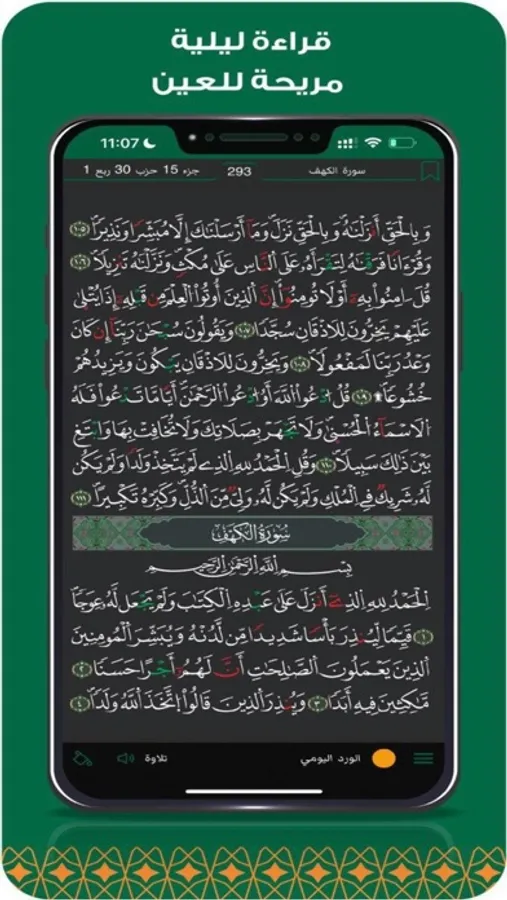 قراءة ليلية
مريحة للعين
11:07
جزء 15 حزب 30 ربع 1
293
سورة الكهف
وَبِالْحَقِّ أَنزَلْنَٰهُ وَبِالْحَقِّ نَزَلَ وَمَا أَرْسَلْنَٰكَ إِلَّا مُبَشِّرًا وَنَذِيرًا ١٠٥
وَقُرْءَانًا فَرَقْنَٰهُ لِتَقْرَأَهُ عَلَى النَّاسِ عَلَىٰ مُكْثٍ وَنَزَّلْنَٰهُ تَنزِيلًا ١٠٦
قُلَ ـٰامِنُوا بِهِ أَوْ لَا تُومِنُوا إِنَّ الَّذِينَ أُوتُوا الْعِلْمَ مِن قَبْلِهِ إِذَا يُتْلَىٰ
عَلَيْهِمْ يَخِرُّونَ لِلَاذْقَانِ سُجَّدًا ١٠٧ وَيَقُولُونَ سُبْحَٰنَ رَبِّنَا إِن كَانَ
وَعْدُ رَبِّنَا لَمَفْعُولًا ١٠٨ وَيَخِرُّونَ لِلَاذْقَانِ يَبْكُونَ وَيَزِيدُهُمْ
خُشُوعًا ١٠٩ قُلُ ادْعُوا اللَّهَ أَوُ ادْعُوا الرَّحْمَٰنَ أَيًّا مَّا تَدْعُوا فَلَهُ
الَاسْمَاءُ الْحُسْنَىٰ وَلَا تَجْهَرْ بِصَلَاتِكَ وَلَا تُخَافِتْ بِهَا وَابْتَغِ
بَيْنَ ذَٰلِكَ سَبِيلًا ١١٠ وَقُلِ الْحَمْدُ لِلَّهِ الَّذِي لَمْ يَتَّخِذْ وَلَدًا وَلَمْ يَكُن
لَّهُ شَرِيكٌ فِي الْمُلْكِ وَلَمْ يَكُن لَّهُ وَلِيٌّ مِّنَ الذُّلِّ وَكَبِّرْهُ تَكْبِيرًا ١١١
سُورَةُ الْكَهْفِ
بِسْمِ اللَّهِ الرَّحْمَٰنِ الرَّحِيمِ
الْحَمْدُ لِلَّهِ الَّذِي أَنزَلَ عَلَىٰ عَبْدِهِ الْكِتَٰبَ وَلَمْ يَجْعَل لَّهُ عِوَجًا
١ قَيِّمًا لِّيُنذِرَ بَأْسًا شَدِيدًا مِّن لَّدُنْهُ وَيُبَشِّرَ الْمُومِنِينَ
الَّذِينَ يَعْمَلُونَ الصَّالِحَاتِ أَنَّ لَهُمْ أَجْرًا حَسَنًا ٢
مَّٰكِثِينَ فِيهِ أَبَدًا ٣ وَيُنذِرَ الَّذِينَ قَالُوا اتَّخَذَ اللَّهُ وَلَدًا ٤
الورد اليومي
تلاوة